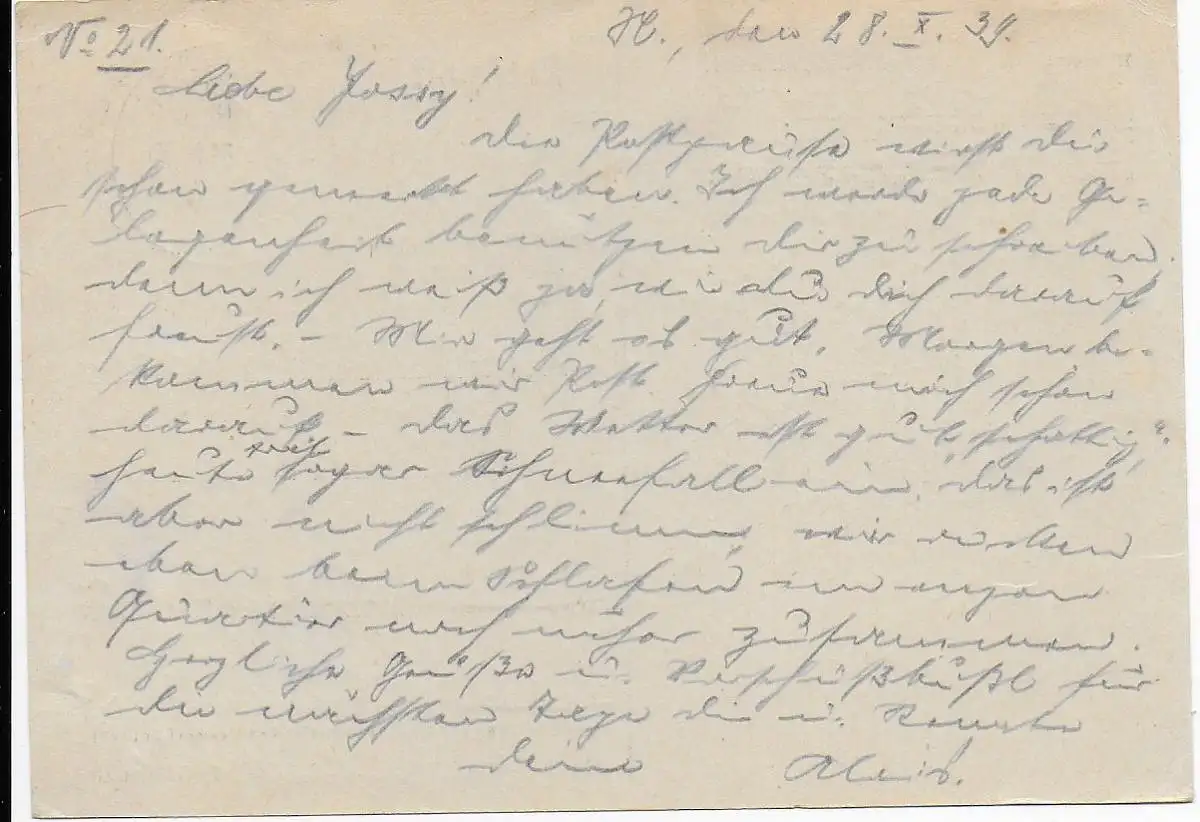 No 21. H., den 28. X. 39.
Liebe Jossy!
Die Postpause wirst du
schon gemerkt haben. Ich werde jede Ge=
legenheit benützen dir zu schreiben,
denn ich weiß ja, wie du dich darauf
freust. – Mir geht es gut. Morgen be=
kommen wir Post. Freue mich schon
darauf – das Wetter ist gut,
heute trifft sogar Schneefall ein, das ist
aber nicht schlimm, wir rücken
eben beim Schlafen im engen
Quartier noch näher zusammen.
Herzliche Grüße u. für
die nächsten Tage dir u. Renate
dein Alois.